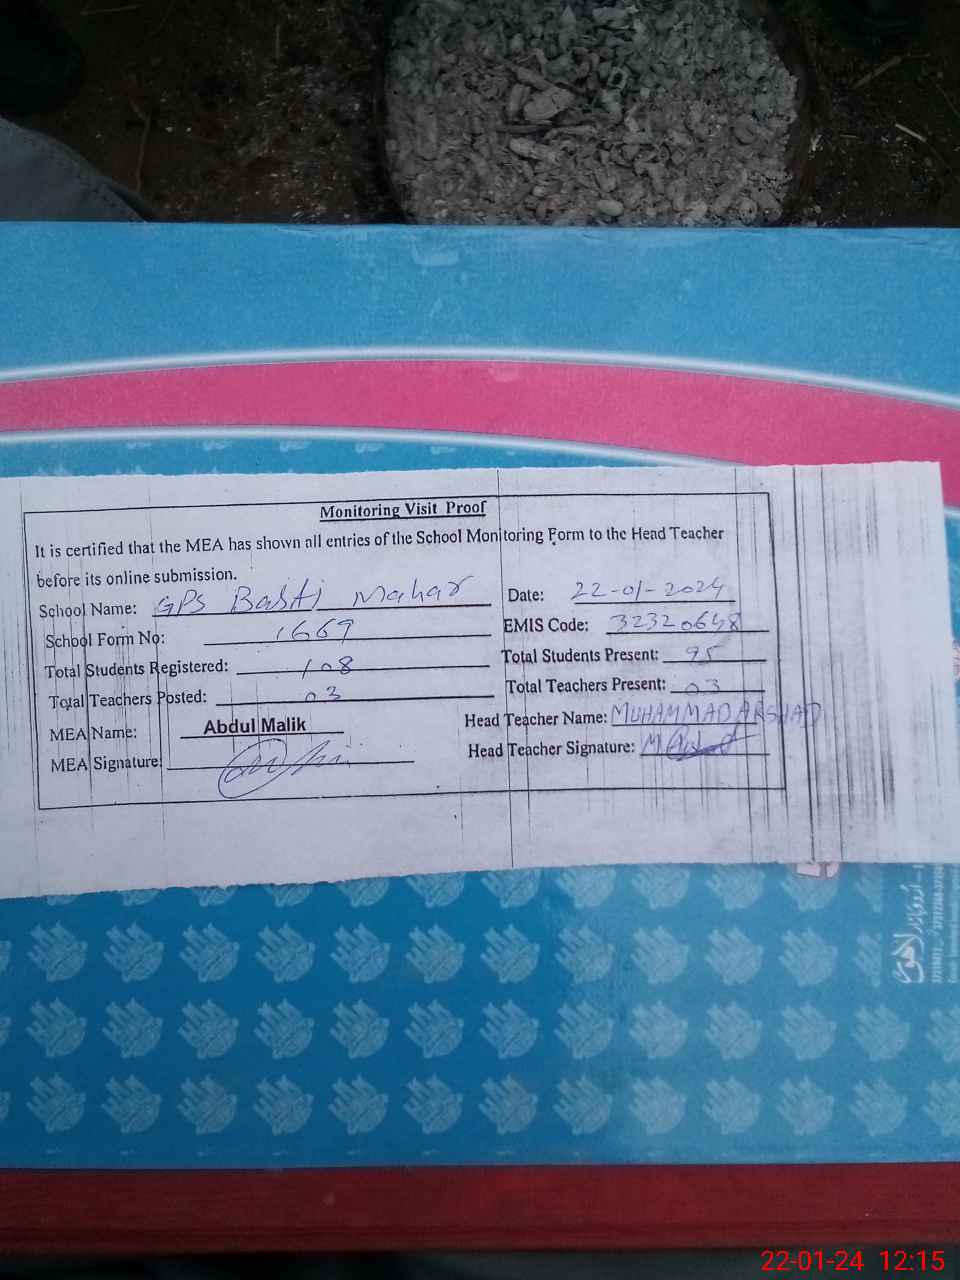 Monitoring Visit Proof
It is certified that the MEA has shown all entries of the School Monitoring Form to the Head Teacher
before its online submission.
School Name: GPS Basti Mahar Date: 22-01-2024
School Form No: 1669 EMIS Code: 32320648
Total Students Registered: 108 Total Students Present: 95
Total Teachers Posted: 03 Total Teachers Present: 03
MEA Name: Abdul Malik Head Teacher Name: MUHAMMAD ARSHAD
MEA Signature: Head Teacher Signature:
لاہور
22-01-24 12:15